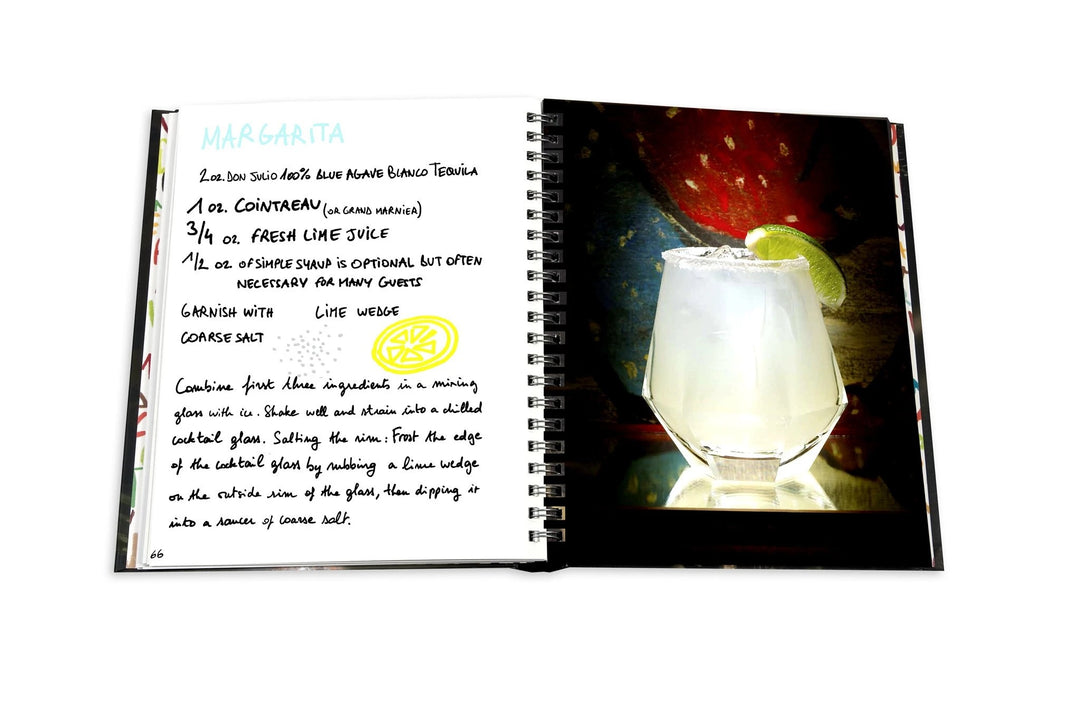 MARGARITA
2 oz. DON JULIO 100% BLUE AGAVE BLANCO TEQUILA
1 oz. COINTREAU (OR GRAND MARNIER)
3/4 oz. FRESH LIME JUICE
1/2 oz. OF SIMPLE SYRUP IS OPTIONAL BUT OFTEN
NECESSARY FOR MANY GUESTS
GARNISH WITH LIME WEDGE
COARSE SALT
Combine first three ingredients in a mixing
glass with ice. Shake well and strain into a chilled
cocktail glass. Salting the rim: Frost the edge
of the cocktail glass by rubbing a lime wedge
on the outside rim of the glass, then dipping it
into a saucer of coarse salt.
66